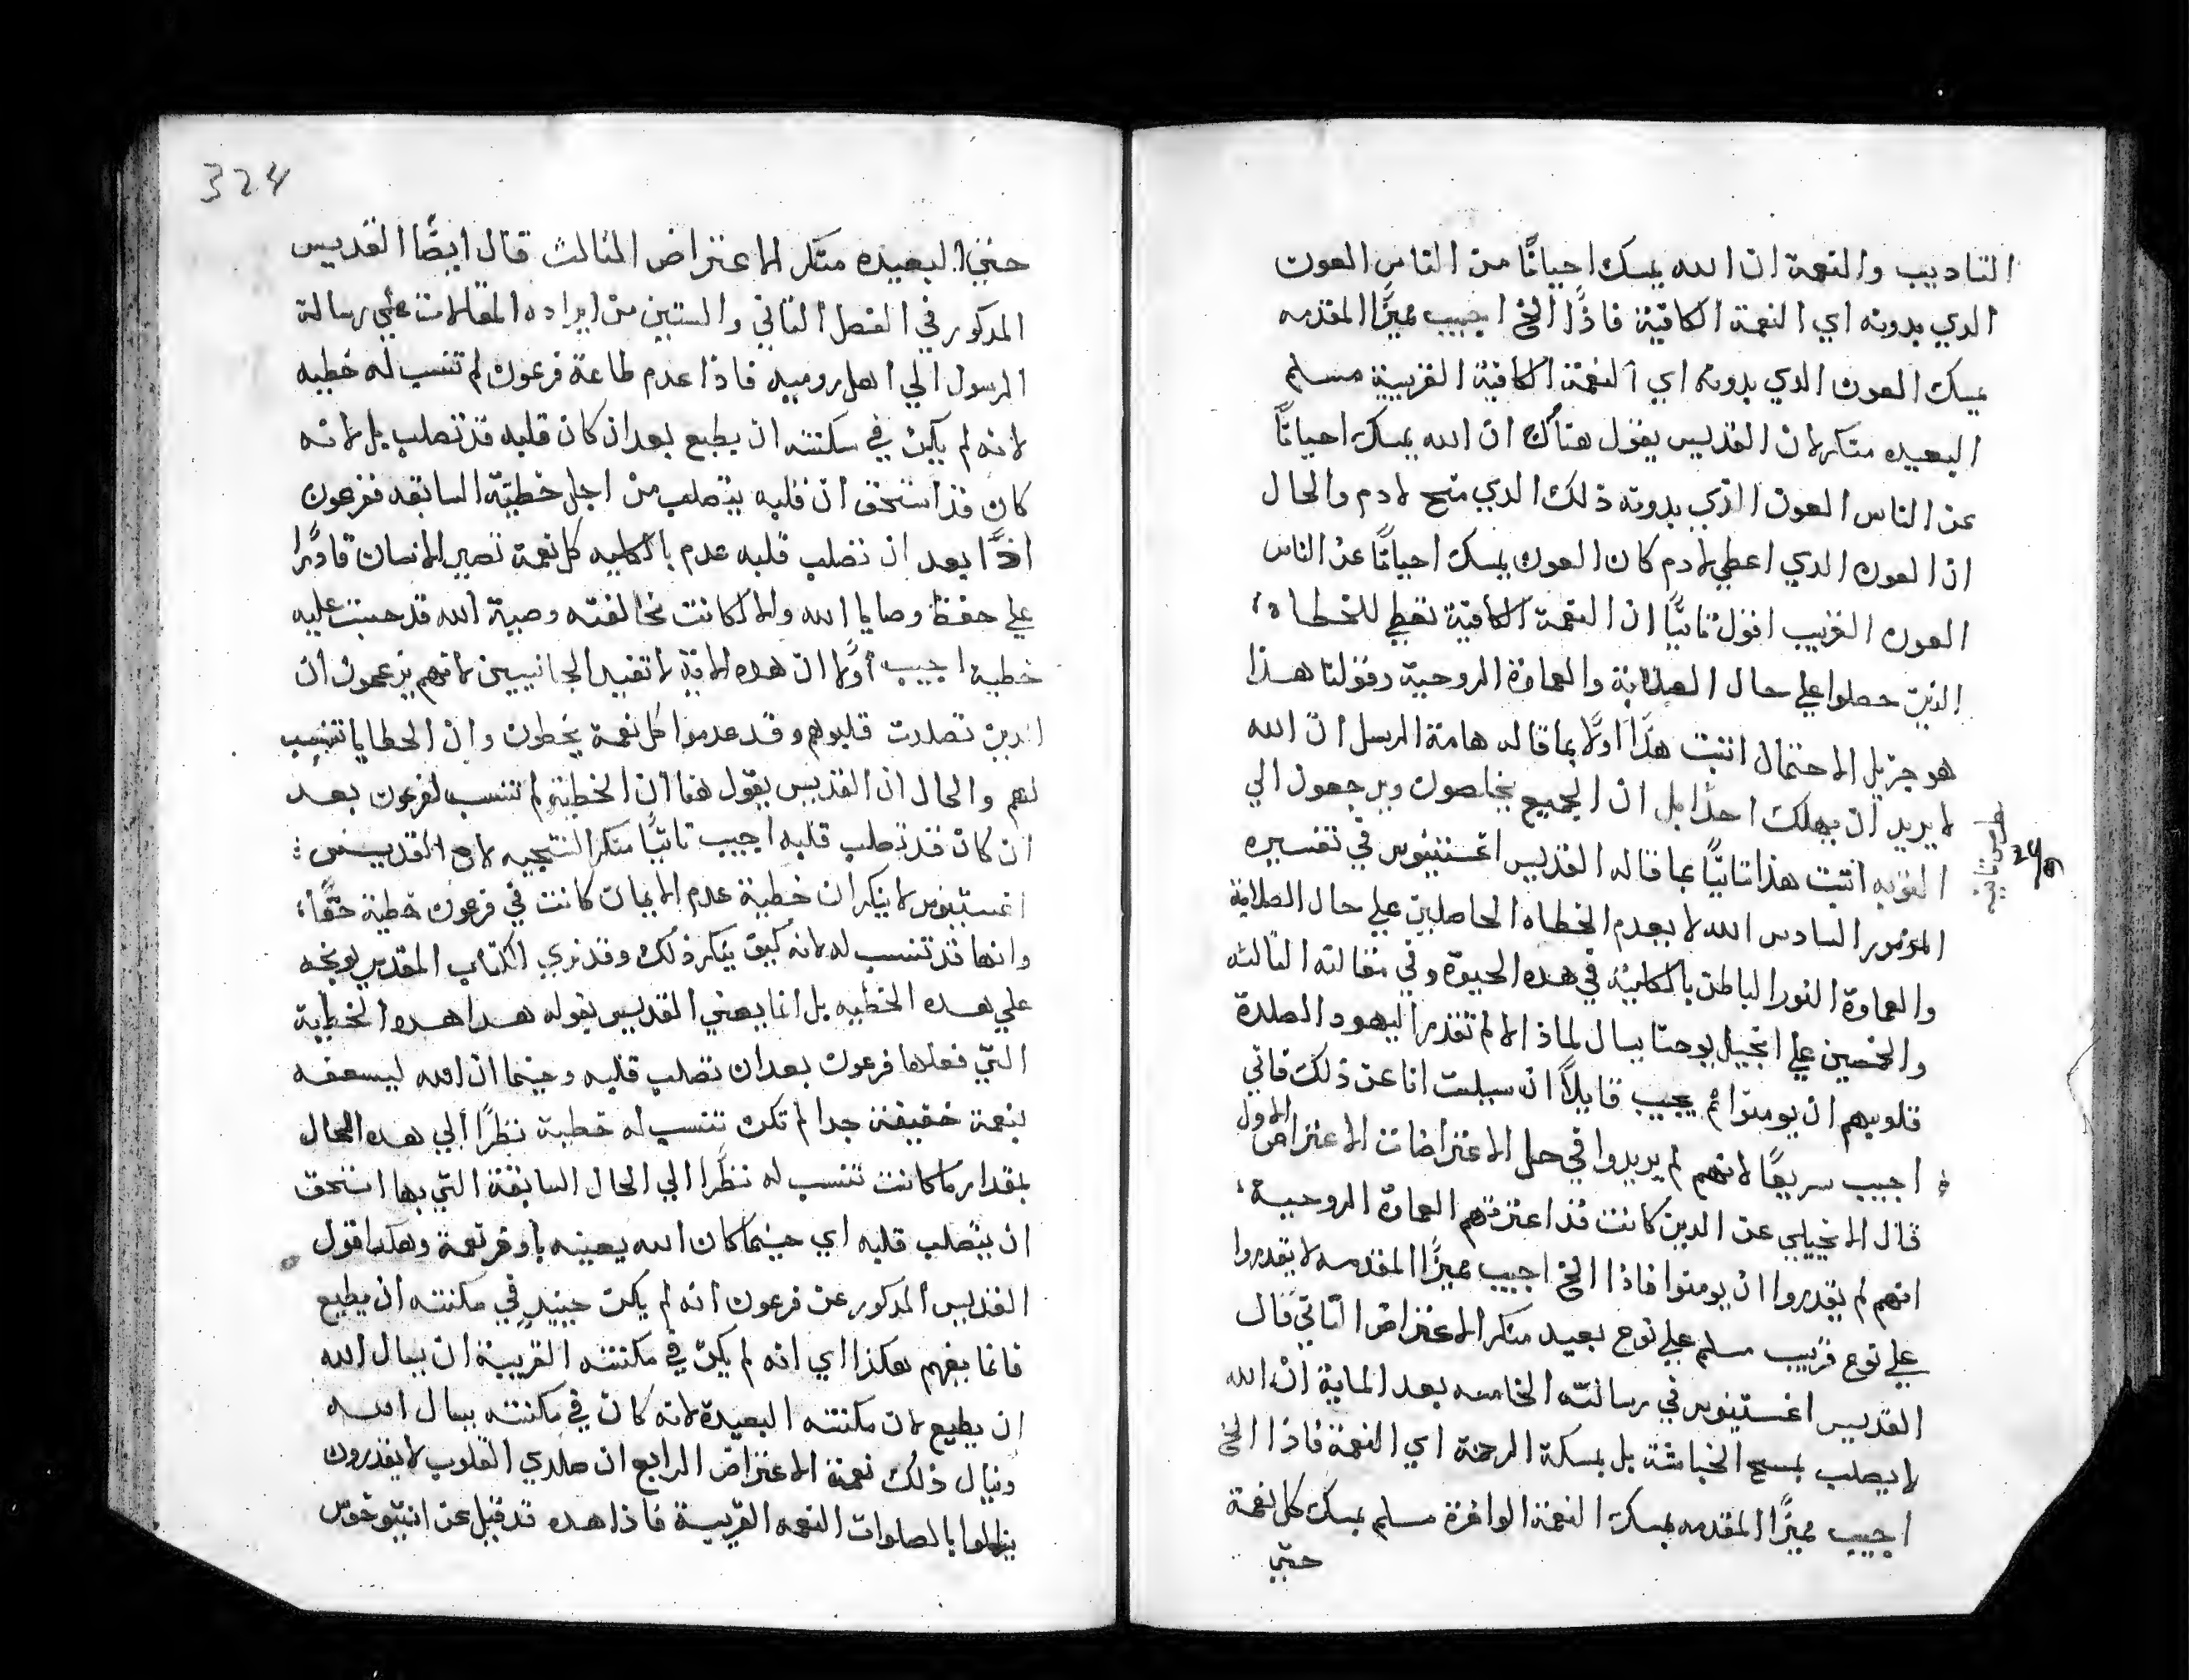 التاديب والنعمة ان الله يمسك احيانًا من الناس العون
الدي بدونه اي النعمة الكافية فاذًا الخ اجيب مميزًا المقدمه
يمسك العون الدي بدونه اي النعمة الكافية القريبة مسلم
البعيده منكر لان القديس يقول هناك ان الله يمسك احيانًا
عن الناس العون الذي بدونه ذلك الدي منح لادم والحال
ان العون الدي اعطي لادم كان العون يمسك احيانًا عن الناس
العون القريب اقول ثانيًا ان النعمة الكافية تعطي للخطاه
الذين حصلوا علي حال الصلابة والعماوة الروحية وقولنا هذا
هو جزيل الاحتمال اثبت هذا اولًا بما قاله هامة الرسل ان الله
لا يريد ان يهلك احدًا بل ان الجميع يخلصون ويرجعون الي
التوبه اثبت هذا ثانيًا بما قاله القديس اغستينوس في تفسيره
المزمور السادس الله لا يعدم الخطاه الحاصلين علي حال الصلابة
والعماوة النور الباطن بالكلية في هده الحيوة وفي مقالته الثالثه
والخمسين علي انجيل يوحنا يسال لماذا لم تقدر اليهود الصلدة
قلوبهم ان يومنوا ثم يجيب قايلًا ان سيلت انا عن ذلك فاني
اجيب سريعًا لانهم لم يريدوا في حل الاعتراضات الاعتراض الاول
قال الانجيلي عن الدين كانت قد اعترتهم العماوة الروحية
انهم لم يقدروا ان يومنوا فاذا الخ اجيب مميزًا المقدمه لا يقدروا
علي نوع قريب مسلم علي نوع بعيد منكر الاعتراض الثاني قال
القديس اغستينوس في رسالته الخامسه بعد الماية ان الله
لا يصلب بمسح الخباثة بل بمسكة الرحمة اي النعمة فاذا الخ
اجيب مميزًا المقدمه بمسك النعمة الوافرة مسلم بمسك كل نعمة
حتي
324
حتي البعيده منكر الاعتراض الثالث قال ايضًا القديس
المدكور في الفصل الثاني والستين من ايراده المقالات علي رسالة
الرسول الي اهل روميه فاذا عدم طاعة فرعون لم تنسب له خطيه
لانه لم يكن في مكنته ان يطيع بعد ان كان قلبه قد تصلب بل لانه
كان قد استحق ان قلبه يتصلب من اجل خطيته السابقه ففرعون
اذًا بعد ان تصلب قلبه عدم بالكليه كل نعمة تصير الانسان قادرًا
علي حفظ وصايا الله والا لكانت مخالفته وصية الله قد حسبت عليه
خطية اجيب اولًا ان هده الاية لا تفيد الجانسيين لانهم يزعمون ان
الدين تصلدت قلوبهم وقد عدموا كل نعمة يخطون وان الخطايا تنسب
لهم والحال ان القديس يقول هنا ان الخطية لم تنسب لفرعون بعد
ان كان قد تصلب قلبه اجيب ثانيًا منكر النتيجيه لان القديس
اغستينوس لا ينكر ان خطية عدم الايمان كانت في فرعون خطية حقًا
وانها قد تنسب له لانه كيف ينكر ذلك وقد نري الكتاب المقدس يوبخه
علي هده الخطيه بل انما يعني القديس بقوله هدا هده الخطية
التي فعلها فرعون بعد ان تصلب قلبه وحينما ان الله ليسعفه
بنعمة خفيفة جدا لم تكن تنسب له خطية نظرًا الي هده الحال
بمقدار ما كانت تنسب له نظرًا الي الحال السابقة التي بها استحق
ان يتصلب قلبه اي حينما كان الله يعينه باوفر نعمة وهكدا قول
القديس المدكور عن فرعون انه لم يكن حينيد في مكنته ان يطيع
فانما يفهم هكذا اي انه لم يكن في مكنته القريبة ان يسال الله
ان يطيع لان مكنته البعيدة لانه كان في مكنته يسال الله
وينال ذلك نعمة الاعتراض الرابع ان صلدي القلوب لا يقدرون
ينالوا بالصلوات النعمه القريبة فاذا هده قد قيل عن انتيوخوس